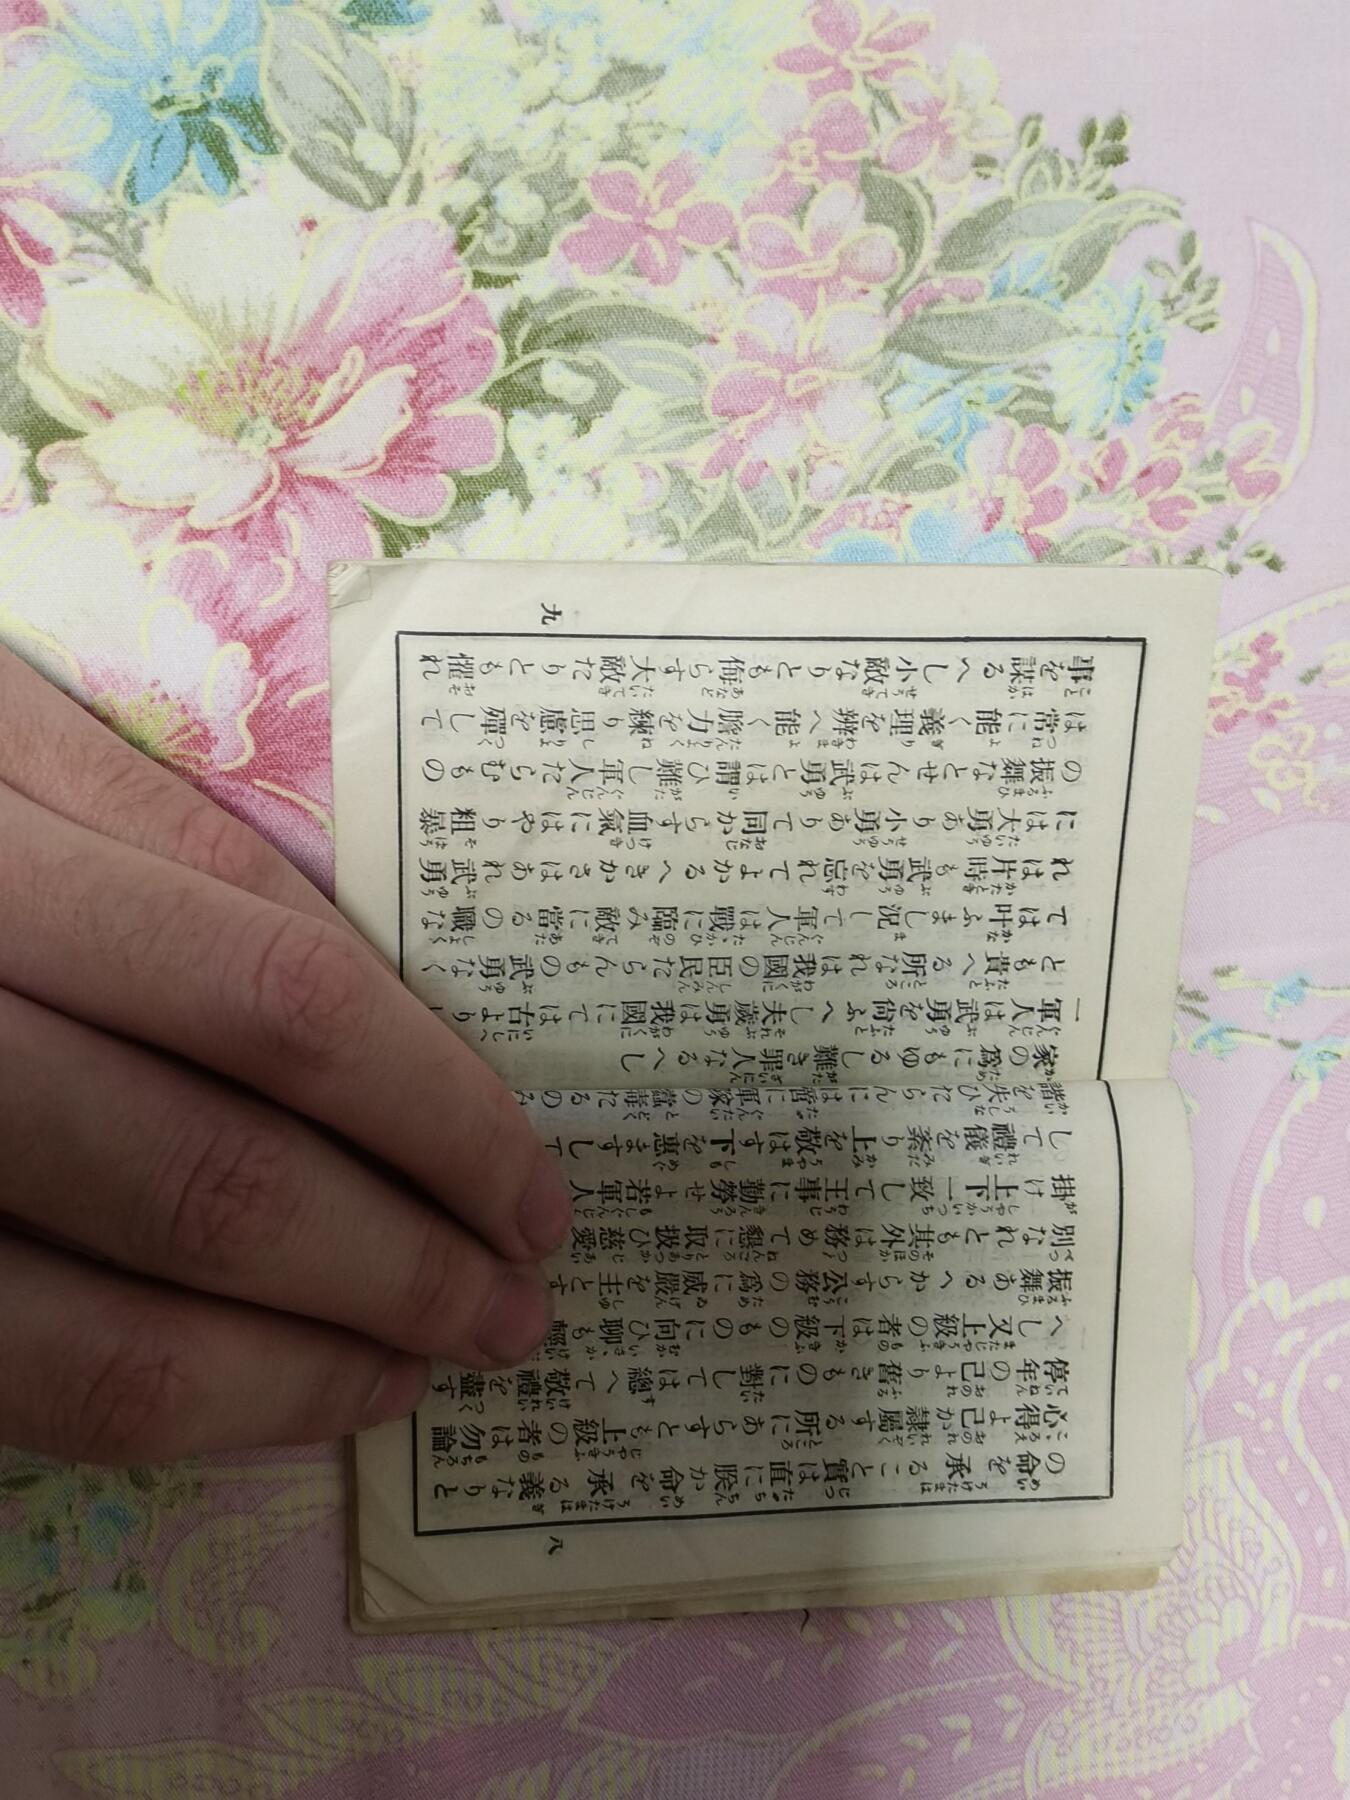 の命を承ること實は直に朕か命を承る義なりと
心得よ己か隷屬する所にあらすとも上級の者は勿論
停年の己より舊きものに對しては總へて敬禮を盡す
へし又上級の者は下級のものに向ひ聊も輕
振舞あるへからす公務の爲に威嚴を主とす
別なれとも其外は務めて懇に取扱ひ慈愛
掛け上下一致して王事に勤勞せよ若軍人
して禮儀を紊り上を敬はす下を惠ますして
諧を失ひたらんには啻に軍隊の蠧毒たるのみ
八
家の爲にもゆるし難き罪人なるへし
一軍人は武勇を尚ふへし夫武勇は我國にては古より
とも貴へる所なれは我國の臣民たらんもの武勇なく
ては叶ふまし況して軍人は戰に臨み敵に當るの職な
れは片時も武勇を忘れてよかるへきかさはあれ武勇
には大勇あり小勇ありて同からす血氣にはやり粗暴
の振舞なとせんは武勇とは謂ひ難し軍人たらむもの
は常に能く義理を辨へ能く膽力を練り思慮を殫して
事を謀るへし小敵なりとも侮らす大敵たりとも懼れ
九